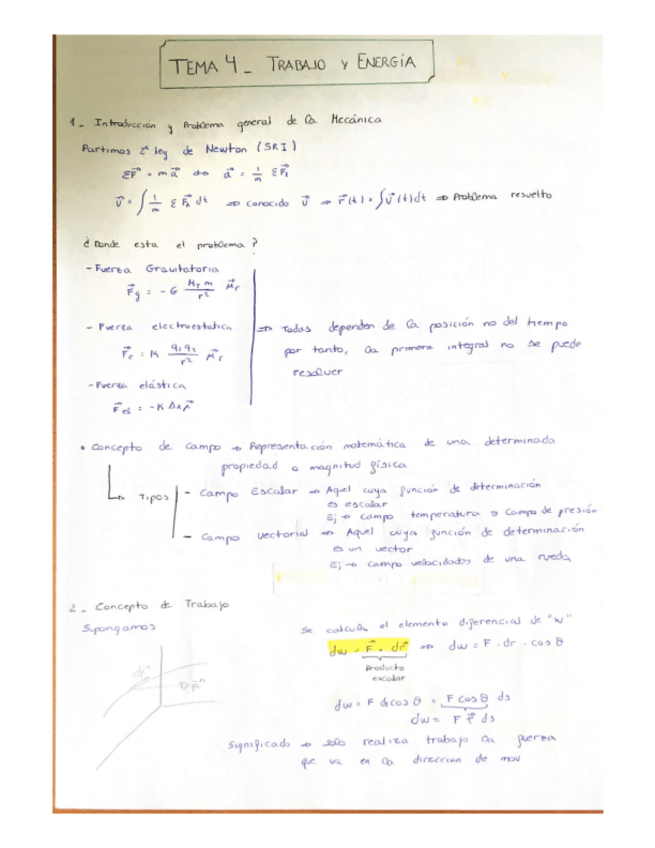 TEMA 4_ TRABAJO Y ENERGÍA
1_ Introducción y Problema general de la Mecánica
Partimos 2ª ley de Newton (SRI)
ΣF⃗ = m a⃗ ⇒ a⃗ = 1/m ΣF⃗
v⃗ = ∫ 1/m Σ F⃗ dt ⇒ conocido v⃗ ⇒ r⃗(t) = ∫v⃗(t)dt ⇒ Problema resuelto
¿Donde esta el problema?
- Fuerza Gravitatoria
F⃗g = - G M_T m / r² μ⃗r
- Fuerza electrostatica
F⃗e = K q1 q2 / r² μ⃗r
⇒ Todas dependen de la posición no del tiempo
por tanto, la primera integral no se puede
resolver
- Fuerza elástica
F⃗el = - K Δ
• Concepto de campo → Representación matemática de una determinada
propiedad o magnitud física
↳ Tipos
- Campo Escalar ⇒ Aquel cuya función de determinación
es escalar
Ej → campo temperatura o Campo de presión
- Campo vectorial ⇒ Aquel cuya función de determinación
es un vector
Ej → campo velocidades de una rueda
2_ Concepto de Trabajo
Supongamos
dr⃗
F⃗
Se calcula el elemento diferencial de "w"
dw = F⃗ · dr⃗ ⇒ dw = F · dr · cos θ
Producto
escalar
dw = F ds cos θ = F cos θ ds
dw = F ds
Significado → solo realiza trabajo la fuerza
que va en la direccion de mov